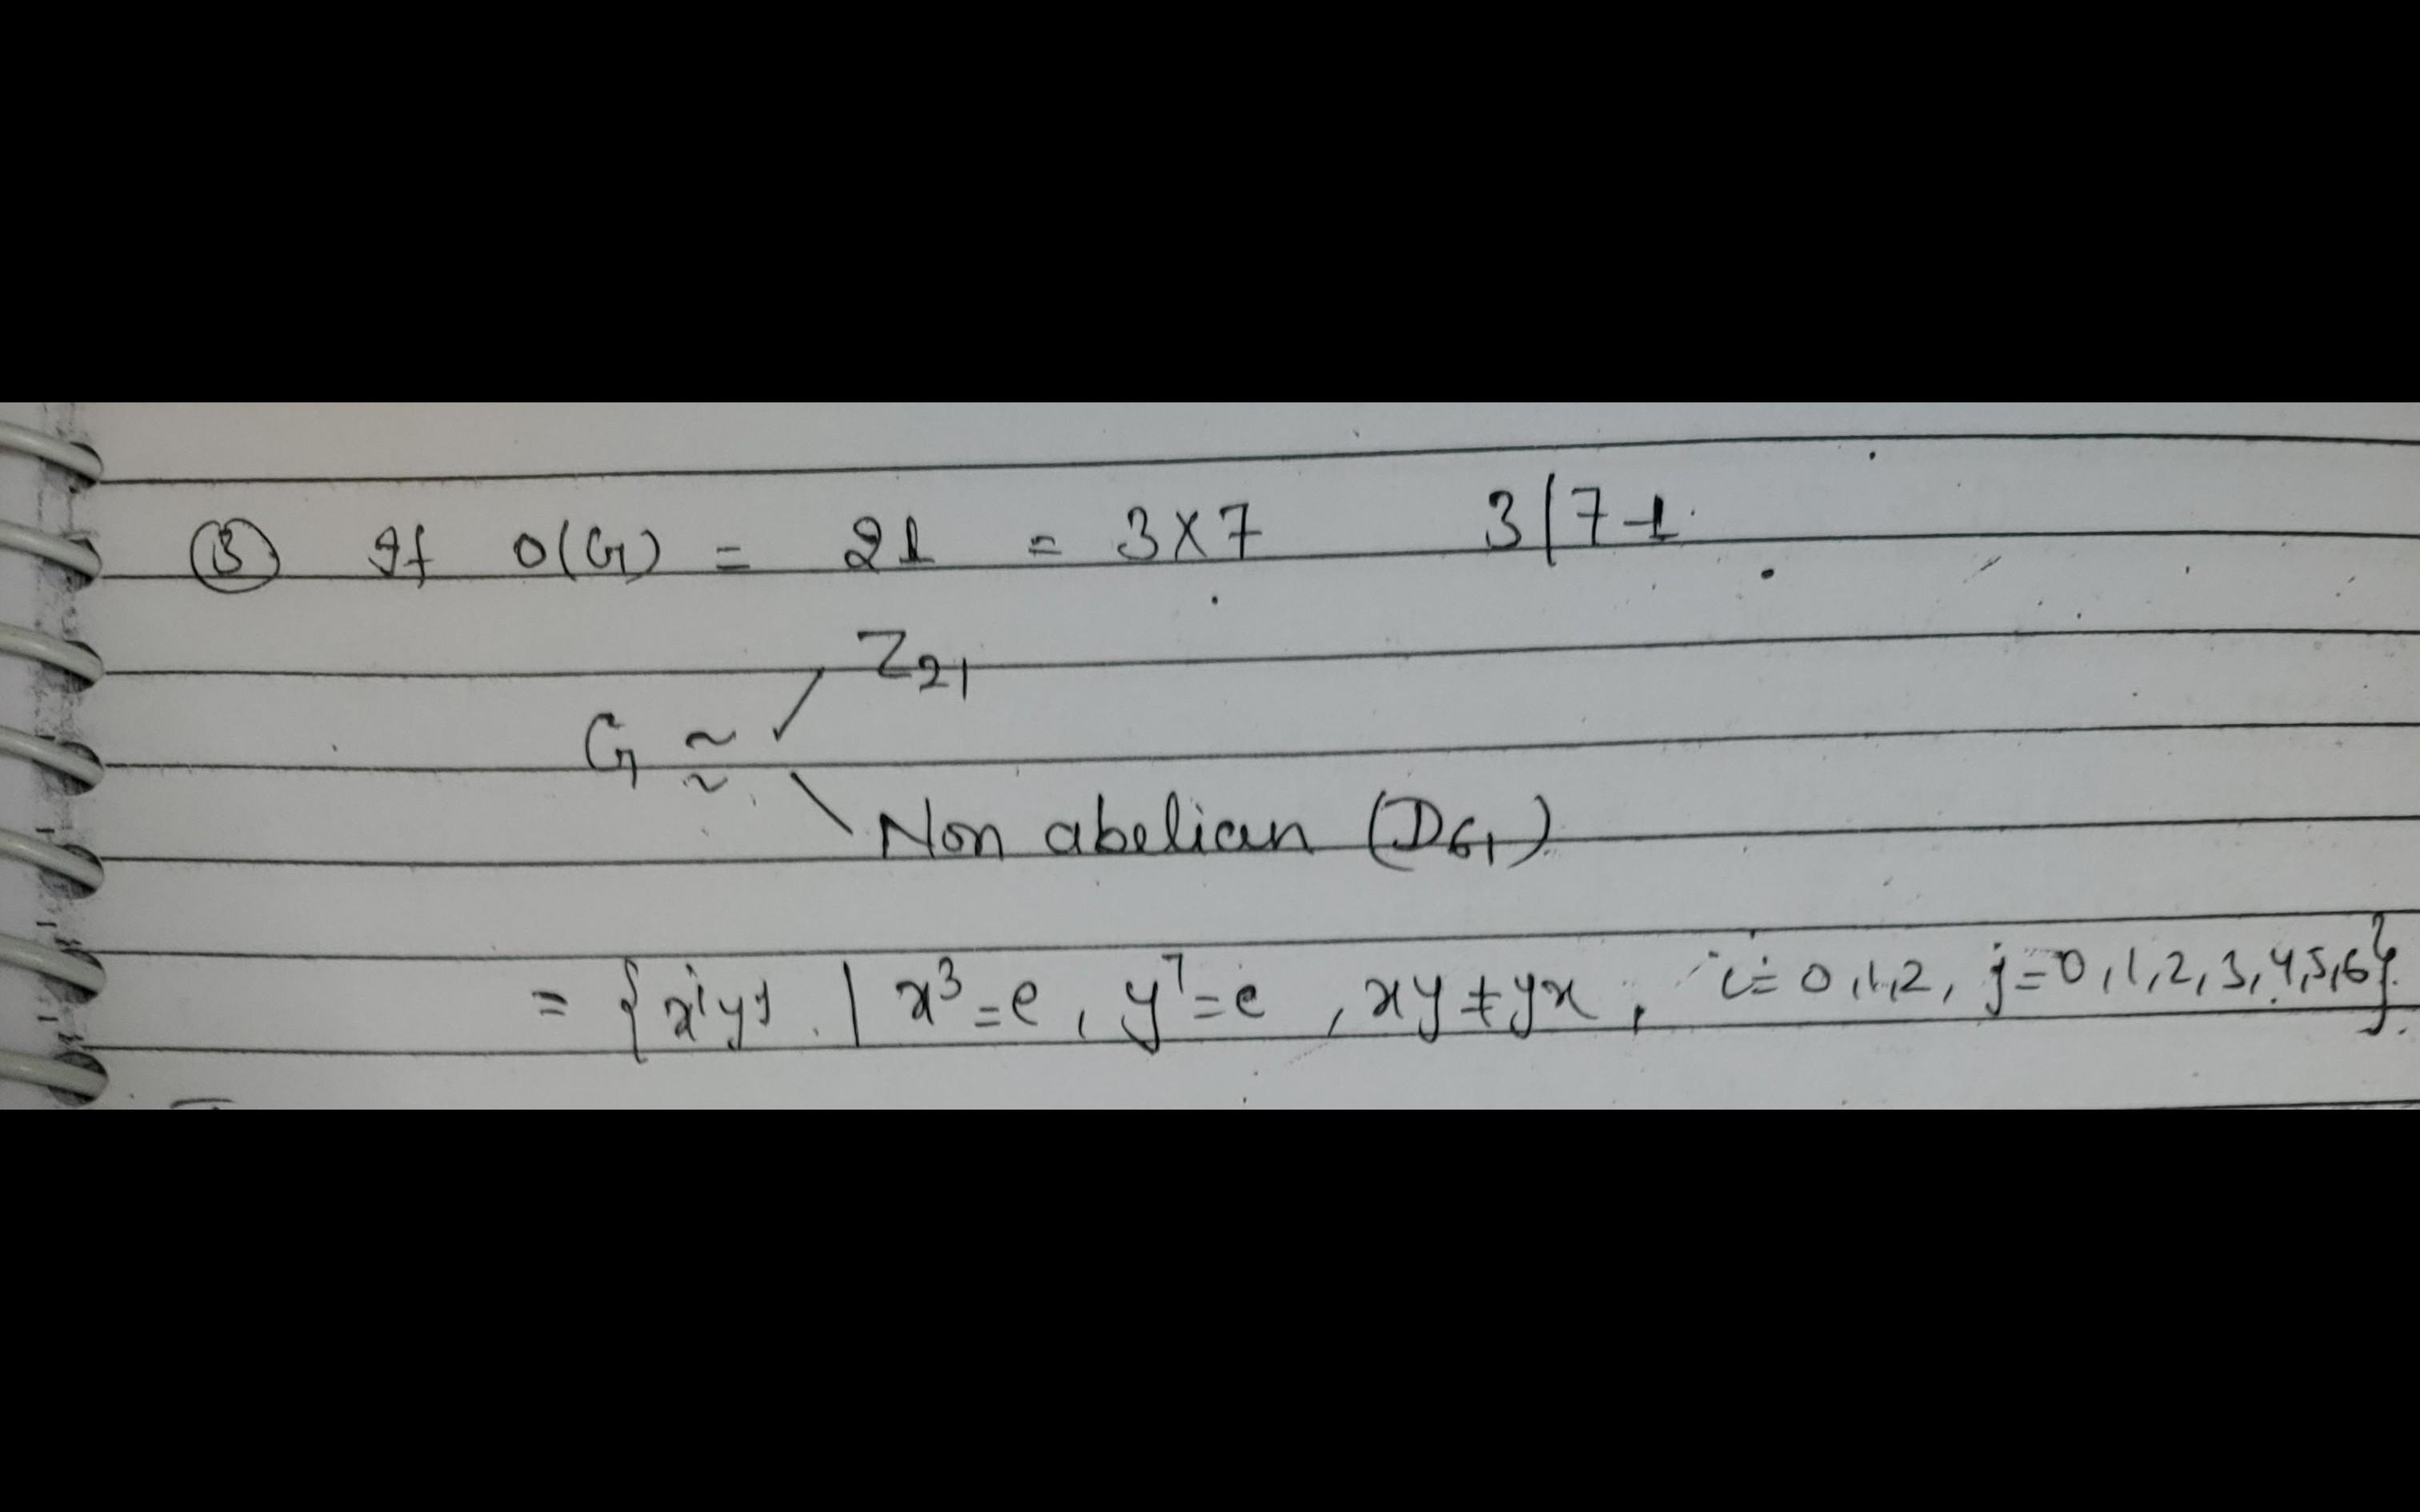 ③ If O(G) = 21 = 3×7 3|7-1
Z₂₁
G ≈
Non abelian (DG1)
= {xⁱyʲ | x³=e, y⁷=e, xy≠yx, i=0,1,2, j=0,1,2,3,4,5,6}.